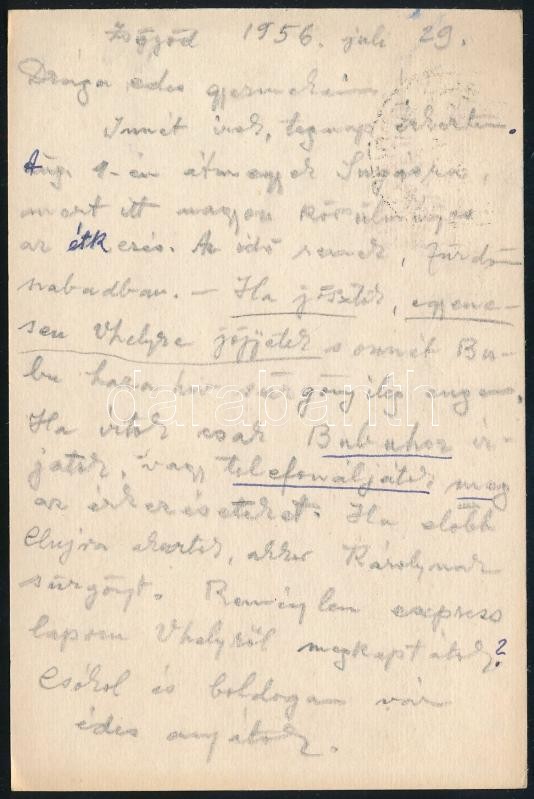 Zsögöd 1956. juli 29.
Draga edes gyermekeim
Innét irok, tegnap érkeztem.
Aug. 1-én átmegyek Sugásra,
mert itt nagyon körülményes
az étkezés. Az idő remek, fürdöm
szabadban. — Ha jösztök, egyene-
sen Vhelyre jöjjetek s onnét Bu-
bu haza hiv sürgönyileg engem.
Ha irtok csak Bubuhoz ir-
jatok, vagy telefonáljátok meg
az érkezésteket. Ha előbb
Clujra akartok, akkor Károlynak
sürgönyt. Remény len express
lapom Vhelyről megkaptátok?
Csókol és boldogan vár
édes anyátok.
darabanth